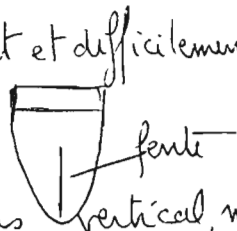 t et difficilemen
fente
s vertical, n